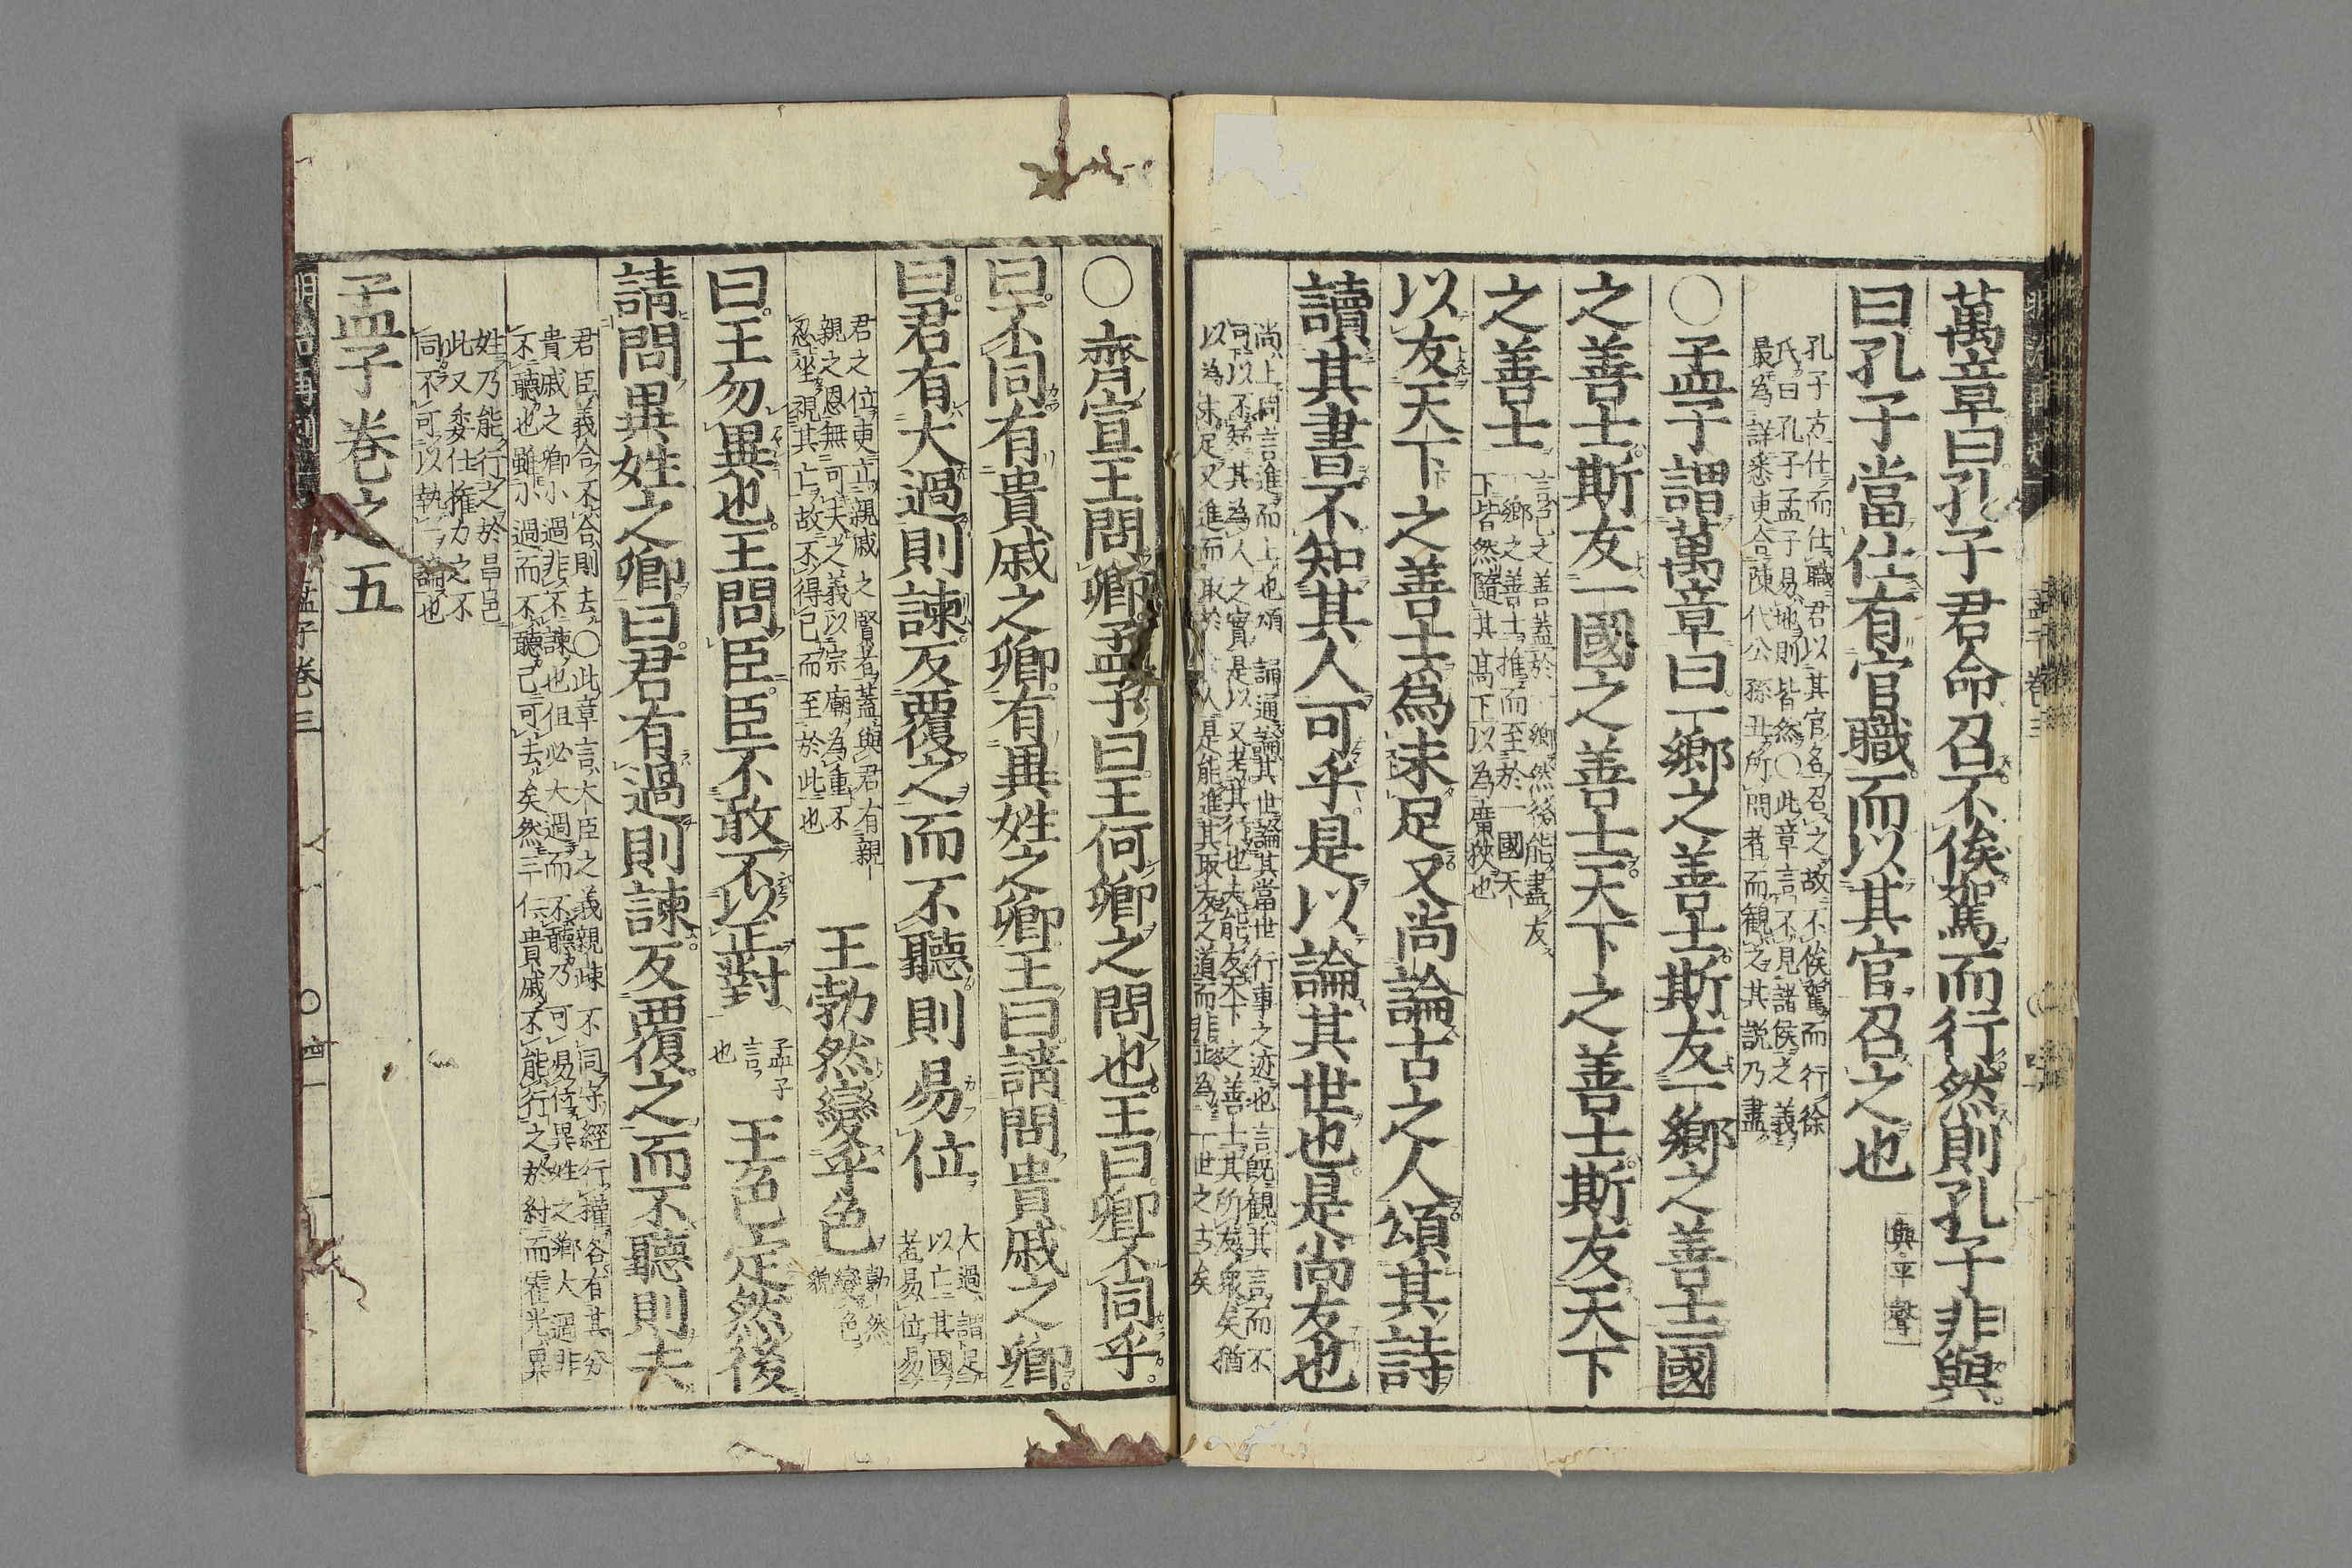 萬章曰孔子君命召不俟駕而行然則孔子非與
曰孔子當仕有官職而以其官召之也 與平聲
孔子方仕而仕職君以其官名召之故不俟駕而行徐
氏曰孔子孟子易地則皆然〇此章言不見諸侯之義
最為詳悉更合陳代公孫丑所問者而觀之其説乃盡
〇孟子謂萬章曰一鄉之善士斯友一鄉之善士一國
之善士斯友一國之善士天下之善士斯友天下
之善士
言己之善蓋於一鄉然後能盡友
一鄉之善士推而至於一國天
下皆然隨其高下以為廣狹也
以友天下之善士為未足又尚論古之人頌其詩
讀其書不知其人可乎是以論其世也是尚友也
尚上同言進而上也頌誦通論其世論其當世行事之迹也言既觀其言而不
可以不知其為人之實是以又考其行也夫能友天下之善士其所友衆矣猶
以為未足又進而取於古人是能進其取友之道而非止為一世之士矣
〇齊宣王問卿孟子曰王何卿之問也王曰卿不同乎
曰不同有貴戚之卿有異姓之卿王曰請問貴戚之卿
曰君有大過則諫反覆之而不聽則易位
大過謂足
以亡其國
者易位易
君之位更立親戚之賢者蓋與君有親
親之恩無可去之義以宗廟為重不
忍坐視其亡故不得已而至於此也
王勃然變乎色
勃然
變色
貌
曰王勿異也王問臣臣不敢不以正對
孟子
言
也
王色定然後
請問異姓之卿曰君有過則諫反覆之而不聽則去
君臣義合不合則去〇此章言大臣之義親疎不同守經行權各有其分
貴戚之卿小過非不諫也但必大過而不聽乃可易位異姓之卿大過非
不諫也雖小過而不聽已可去矣然三仁貴戚不能行之於紂而霍光異
姓乃能行之於昌邑
此又委任權力之不
同不可以執一論也
孟子卷之五
孟子卷三